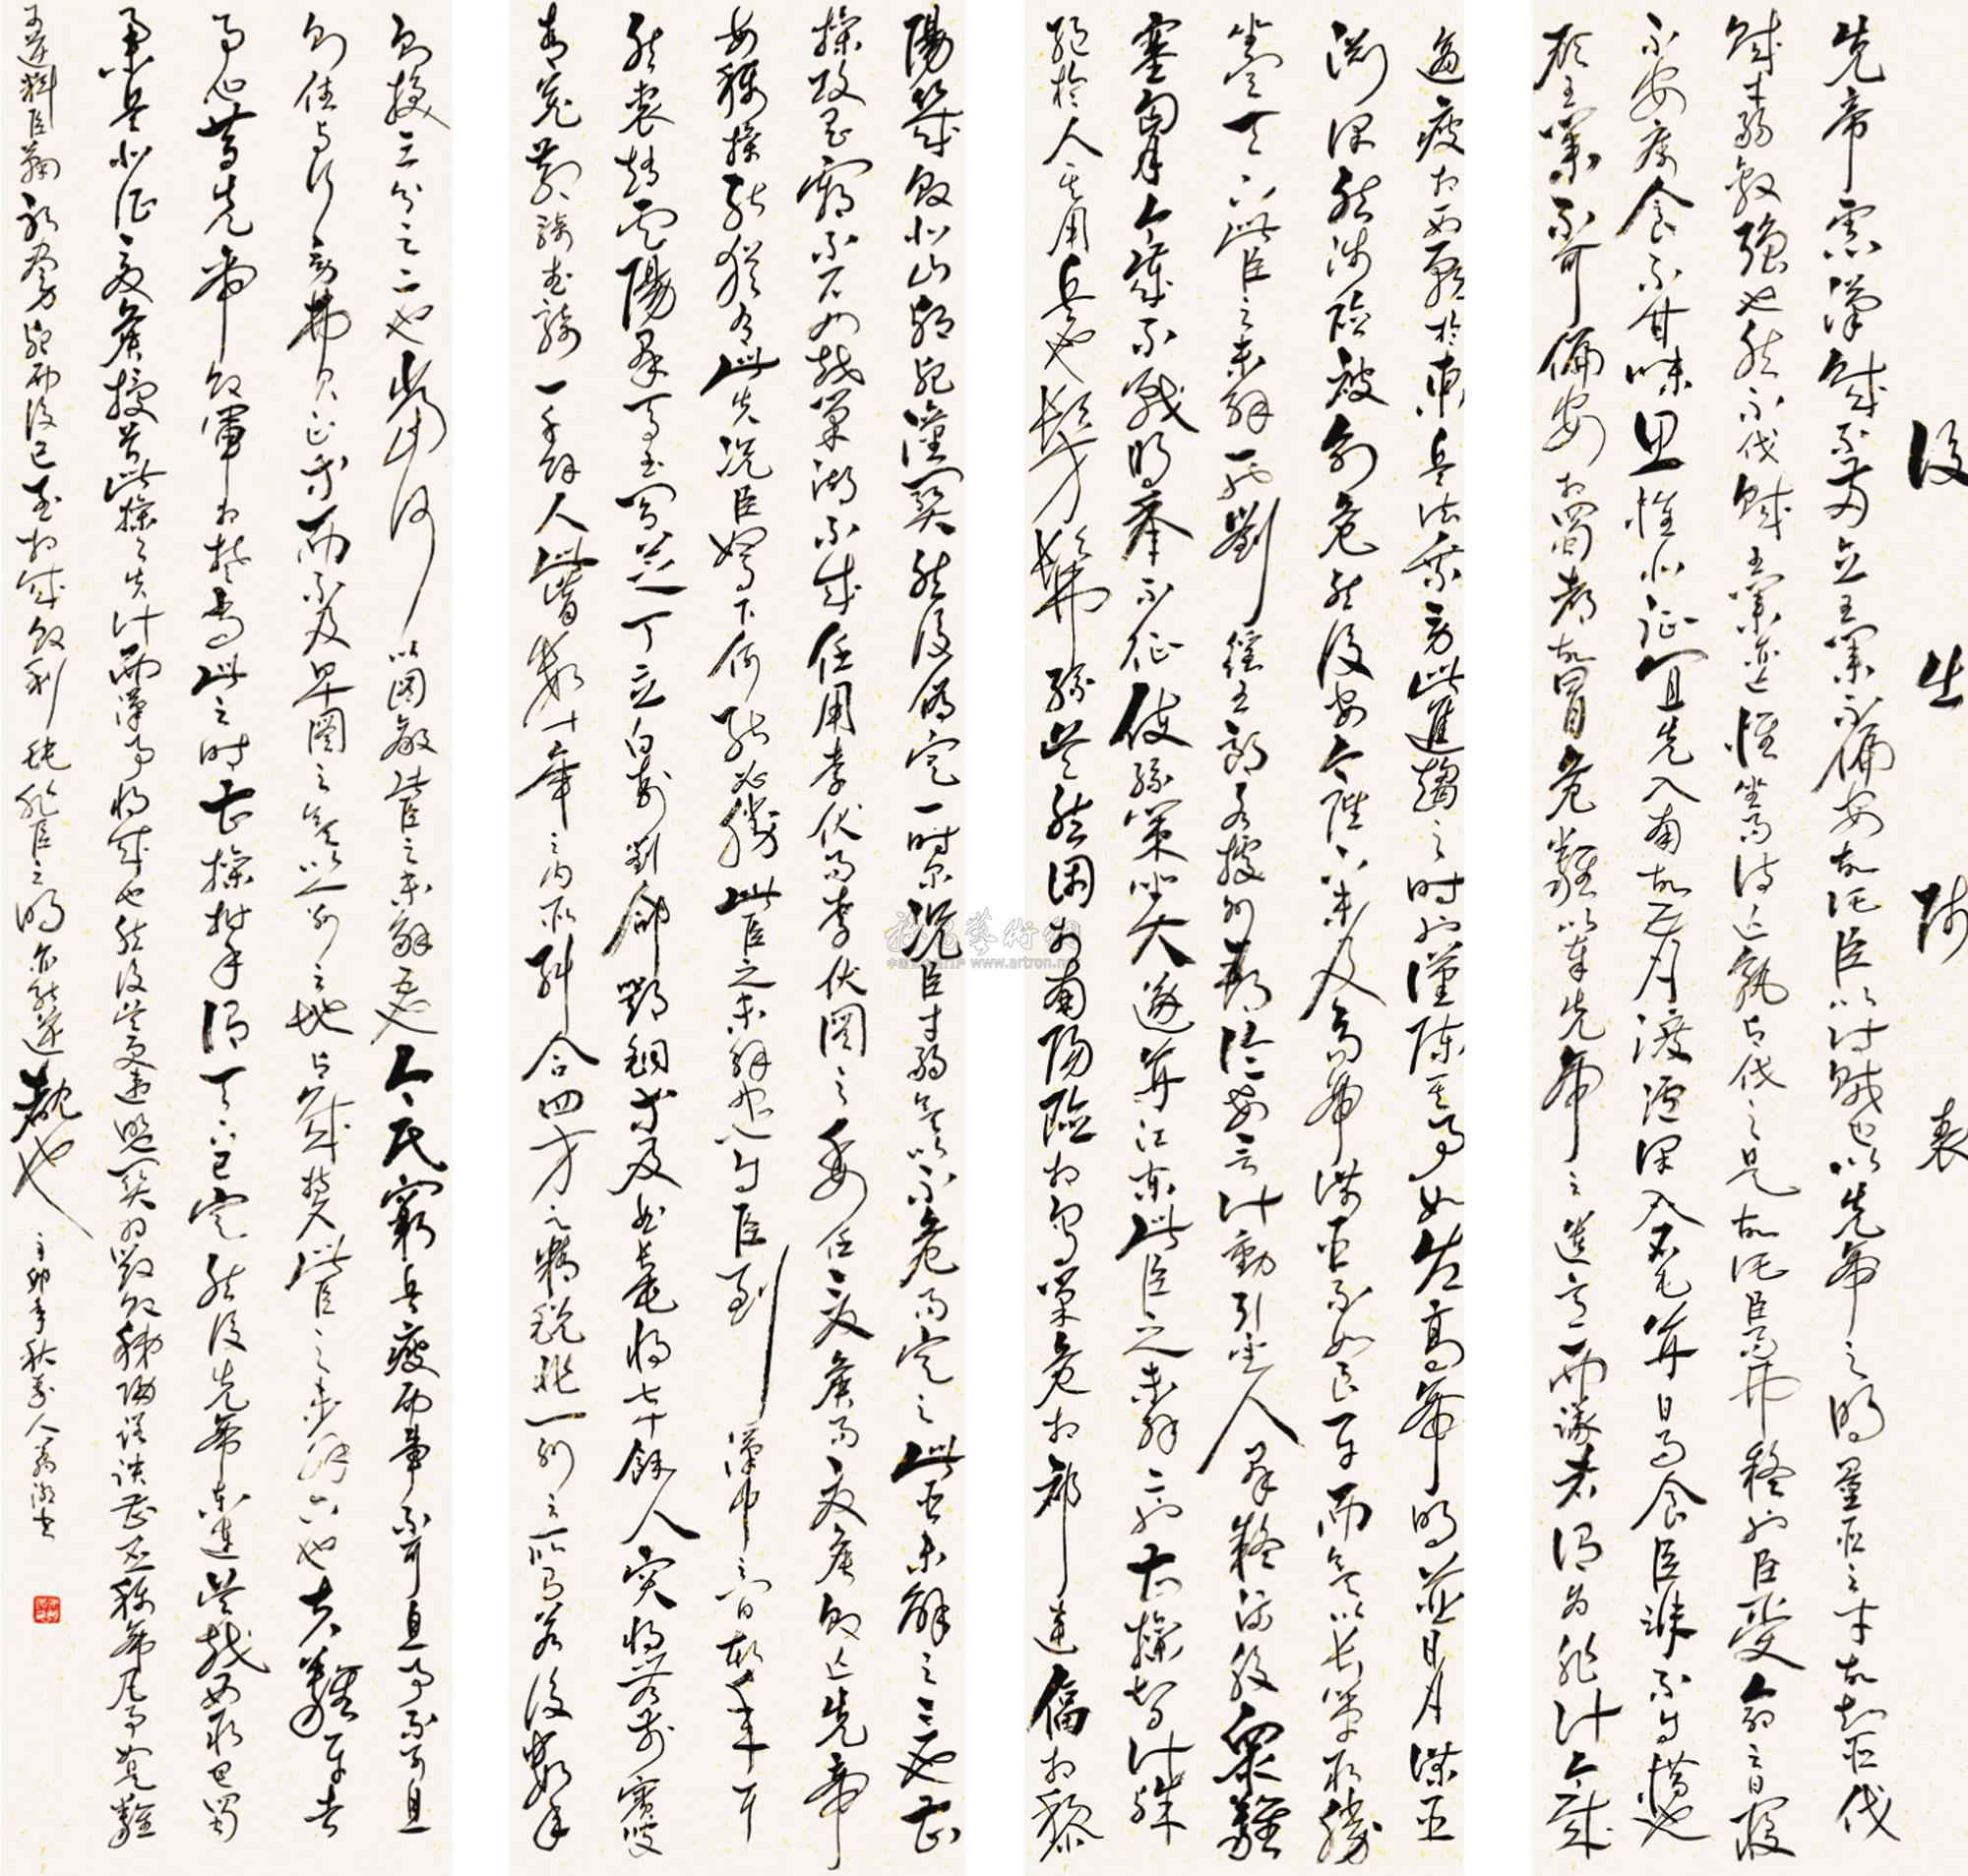 後出師表
先帝慮漢賊不兩立王業不偏安故託臣以討賊也以先帝之明量臣之才故知臣伐
賊才弱敵強也然不伐賊王業亦亡惟坐而待亡孰與伐之是故託臣而弗疑也臣受命之日寢
不安席食不甘味思惟北征宜先入南故五月渡瀘深入不毛并日而食臣非不自惜也
顧王業不可偏安於蜀都故冒危難以奉先帝之遺意而議者謂為非計今賊
適疲於西又務於東兵法乘勞此進趨之時也謹陳其事如左高帝明並日月謀臣
淵深然涉險被創危然後安今陛下未及高帝謀臣不如良平而欲以長策取勝
坐定天下此臣之未解一也劉繇王朗各據州郡論安言計動引聖人群疑滿腹眾難
塞胸今歲不戰明年不征使孫策坐大遂并江東此臣之未解二也曹操智計殊
絕於人其用兵也髣髴孫吳然困於南陽險於烏巢危於祁連偪於黎
陽幾敗北山殆死潼關然後偽定一時爾況臣才弱欲以不危而定之此臣未解之三也曹
操攻昌霸不下四越巢湖不成任用李伏而李伏圖之委任夏侯而夏侯敗亡先帝
每稱操能猶有此失況臣駑下何能必勝此臣之未解四也自臣到漢中之間日朞年耳
然喪趙雲陽群馬玉閻芝丁立白壽劉郃鄧銅等及曲長屯將七十餘人突將無前賨叟
青羌散騎武騎一千餘人此皆數十年之內所糾合四方之精銳非一州之所有若復數年
則損三分之二也當何以圖敵此臣之未解五也今民窮兵疲而事不可息事不可息
則住與行勞費正等而不及早圖之欲以一州之地與賊持久此臣之未解六也夫難平者
事也昔先帝敗軍於楚當此之時曹操拊手謂天下已定然後先帝東連吳越西取巴蜀
舉兵北征夏侯授首此操之失計而漢事將成也然後吳更違盟關羽毀敗秭歸蹉跌曹丕稱帝凡事如是難
可逆料臣鞠躬盡力死而後已至於成敗利鈍非臣之明所能逆覩也 辛卯年秋 書
www.artron.net